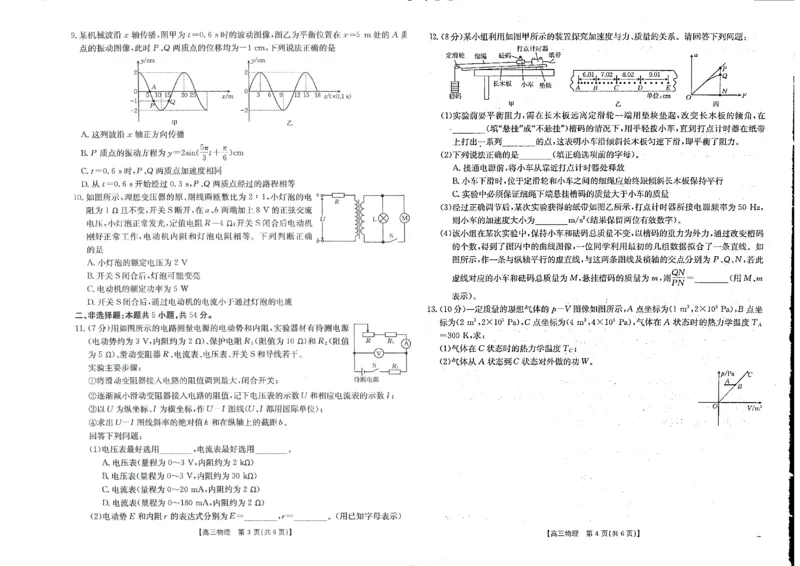 9.某机械波沿 x 轴传播,图甲为 t=0.6 s时的波动图像,图乙为平衡位置在 x=5 m 处的 A 质
点的振动图像,此时 P、Q 两质点的位移均为-1 cm,下列说法正确的是
y/cm
2
0
-1
-2
A
P
Q
5 10 15 20 25
x/m
甲
y/cm
2
0
-2
3 6 9 12 15 18
t/(×0.1 s)
乙
A. 这列波沿 x 轴正方向传播
B. P 质点的振动方程为 y=2sin(5π/3 t+π/6)cm
C. t=0.6 s时,P、Q 两质点加速度相同
D. 从 t=0.6 s开始经过 0.3 s,P、Q 两质点经过的路程相等
10. 如图所示,理想变压器的原、副线圈匝数比为 2∶1,小灯泡的电
阻为 1 Ω且不变,开关S断开,在 a、b 两端加上 8 V 的正弦交流
电压,小灯泡正常发光,定值电阻 R=4 Ω;开关 S 闭合后电动机
刚好正常工作,电动机内阻和灯泡电阻相等。下列判断正确
的是
a
R
U
L
M
S
b
A. 小灯泡的额定电压为 2 V
B. 开关 S 闭合后,灯泡可能变亮
C. 电动机的额定功率为 5 W
D. 开关 S 闭合后,通过电动机的电流小于通过灯泡的电流
二、非选择题:本题共 5 小题,共 54 分。
11. (7 分)用如图所示的电路测量电源的电动势和内阻,实验器材有待测电源
(电动势约为 3 V,内阻约为 2 Ω)、保护电阻 R₁(阻值为 10 Ω)和 R₂(阻值
为 5 Ω)、滑动变阻器 R、电流表、电压表、开关 S 和导线若干。
R
R₁
A
V
S
R₂
待测电源
实验主要步骤:
①将滑动变阻器接入电路的阻值调到最大,闭合开关;
②逐渐减小滑动变阻器接入电路的阻值,记下电压表的示数 U 和相应电流表的示数 I;
③以 U 为纵坐标、I 为横坐标,作 U-I 图线(U、I 都用国际单位);
④求出 U-I 图线斜率的绝对值 k 和在纵轴上的截距 b。
回答下列问题:
(1)电压表最好选用______,电流表最好选用______。
A. 电压表(量程为 0~3 V,内阻约为 2 kΩ)
B. 电压表(量程为 0~3 V,内阻约为 30 kΩ)
C. 电流表(量程为 0~20 mA,内阻约为 2 Ω)
D. 电流表(量程为 0~180 mA,内阻约为 2 Ω)
(2)电动势 E 和内阻 r 的表达式分别为 E=______,r=______。(用已知字母表示)
【高三物理 第 3 页(共 6 页)】
12. (8 分)某小组利用如图甲所示的装置探究加速度与力、质量的关系。请回答下列问题:
定滑轮
细绳
砝码
打点计时器
纸带
长木板
小车
垫块
槽码
甲
6.01
7.02
8.02
9.01
A B C D E
单位:cm
乙
a
P
Q
N
O
F
丙
(1)实验前要平衡阻力,需在长木板远离定滑轮一端用垫块垫起,改变长木板的倾角,在
______(填“悬挂”或“不悬挂”)槽码的情况下,用手轻拨小车,直到打点计时器在纸带
上打出一系列______的点,这表明小车沿倾斜长木板匀速下滑,即平衡了阻力。
(2)下列说法正确的是______(填正确选项前的字母)。
A. 接通电源前,将小车从靠近打点计时器处释放
B. 小车下滑时,位于定滑轮和小车之间的细绳应始终跟倾斜长木板保持平行
C. 实验中必须保证细绳下端悬挂槽码的质量大于小车的质量
(3)经过正确调节后,某次实验获得的纸带如图乙所示,打点计时器所接电源频率为 50 Hz,
则小车的加速度大小为______m/s²(结果保留两位有效数字)。
(4)该小组在某次实验中,保持小车和砝码总质量不变,以槽码的重力为外力,通过改变槽码
的个数,得到了图丙中的曲线图像,一位同学利用最初的几组数据拟合了一条直线。如
图所示,作一条与纵轴平行的虚线,与这两条图线及横轴的交点分别为 P、Q、N,若此
虚线对应的小车和砝码总质量为 M,悬挂槽码的质量为 m,则QN/PN=______(用 M、m
表示)。
13. (10 分)一定质量的理想气体的 p-V 图像如图所示,A 点坐标为(1 m³,2×10⁵ Pa),B 点坐
标为(2 m³,2×10⁵ Pa),C 点坐标为(4 m³,4×10⁵ Pa),气体在 A 状态时的热力学温度 T_A
=300 K,求:
(1)气体在 C 状态时的热力学温度 T_C;
(2)气体从 A 状态到 C 状态对外做的功 W。
p/Pa
C
A
B
O
V/m³
【高三物理 第 4 页(共 6 页)】